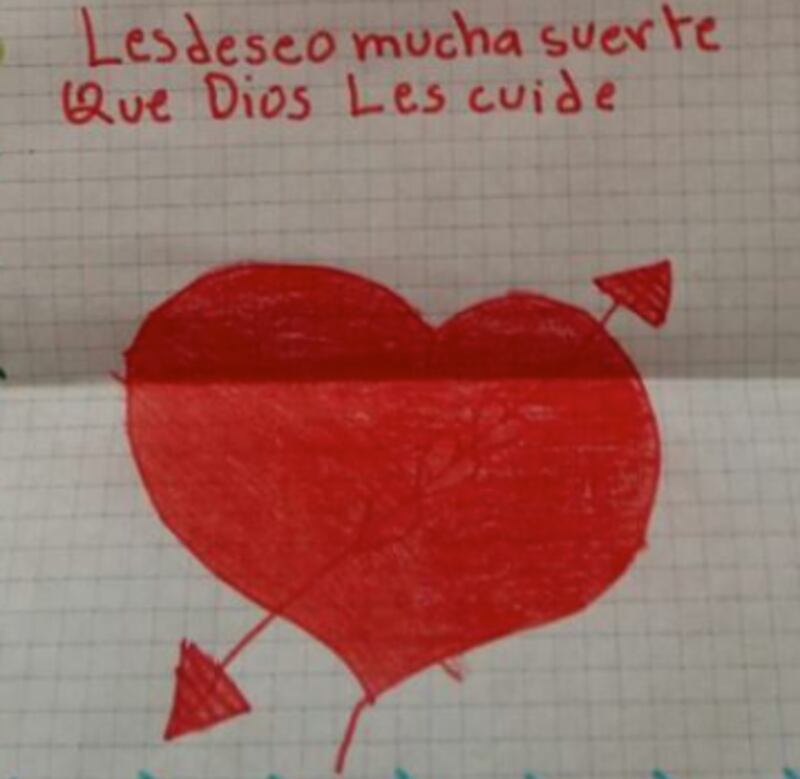 Les deseo mucha suerte
Que Dios Les cuide